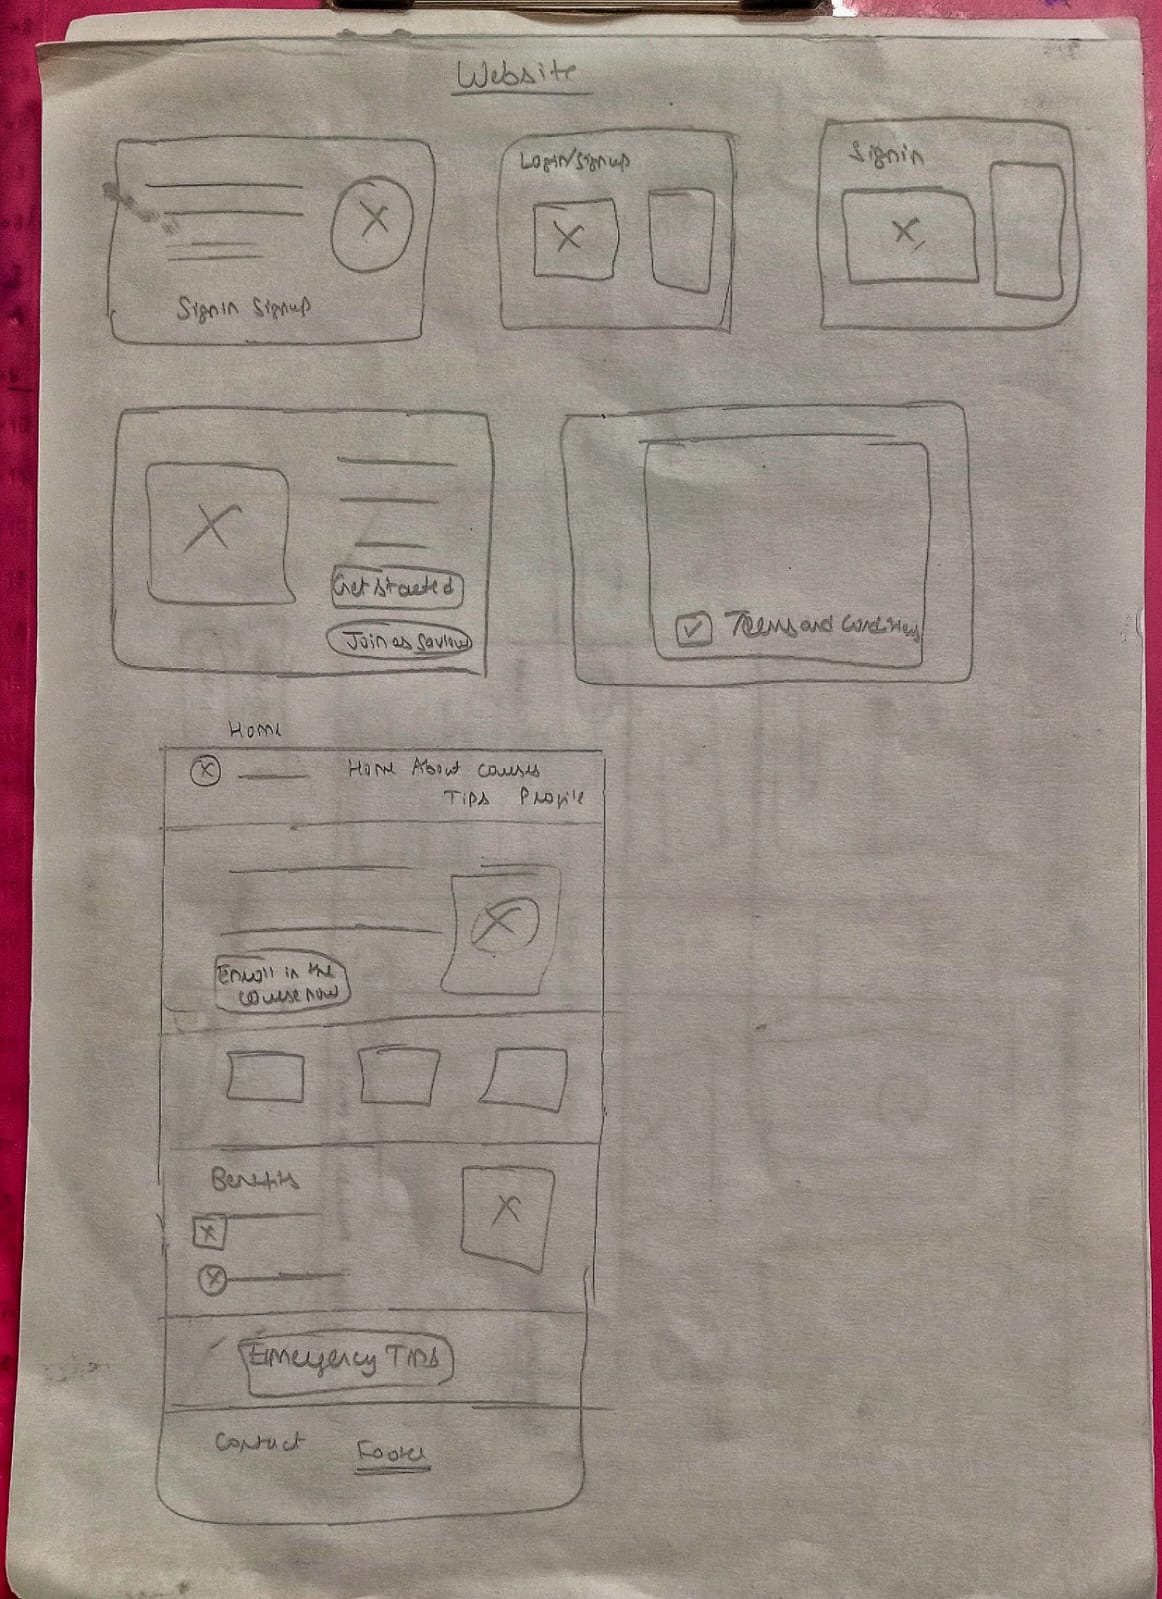 Website
Signin Signup
Login/Signup
Signin
Get started
Join as Saviour
Terms and Conditions
Home
Home About courses
Tips Profile
Enroll in the
course now
Benefits
Emergency Tips
Contact
Footer